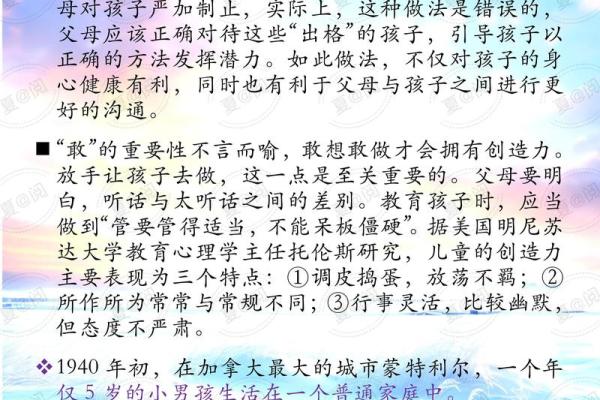 母对孩子严加制止，实际上，这种做法是错误的，
父母应该正确对待这些“出格”的孩子，引导孩子以
正确的方法发挥潜力。如此做法，不仅对孩子的身
心健康有利，同时也有利于父母与孩子之间进行更
好的沟通。
■“敢”的重要性不言而喻，敢想敢做才会拥有创造力。
放手让孩子去做，这一点是至关重要的。父母要明
白，听话与太听话之间的差别。教育孩子时，应当
做到“管要管得适当，不能呆板僵硬”。据美国明尼苏
达大学教育心理学主任托伦斯研究，儿童的创造力
主要表现为三个特点：①调皮捣蛋，放荡不羁；②
所作所为常常与常规不同；③行事灵活，比较幽默，
但态度不严肃。
❖1940 年初，在加拿大最大的城市蒙特利尔，一个年
仅 5 岁的小男孩生活在一个普通家庭中。